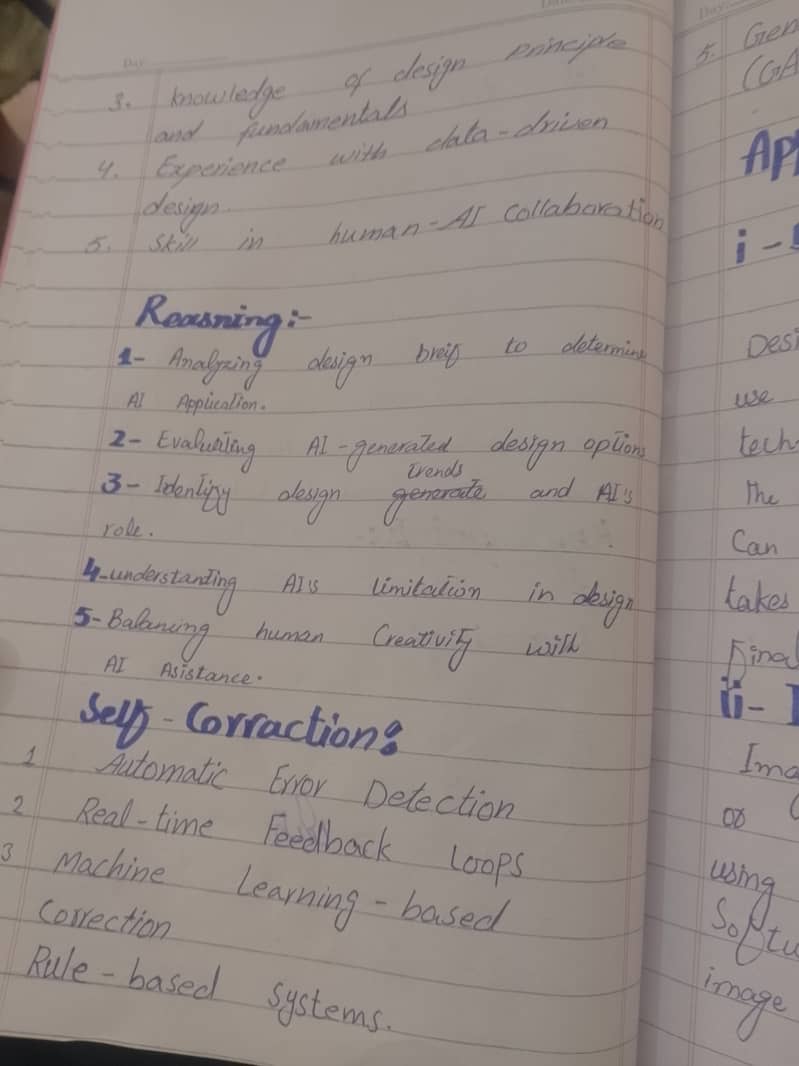 Day
3. knowledge of design principle
and fundamentals
4. Experience with data-driven
design.
5. Skill in human-AI Collaboration
Reasning:-
1- Analyzing design breif to determine
AI Application.
2- Evaluating AI-generated design options
trends
3- Identify design generate and AI's
role.
4-understanding AI's limitation in design
5-Balancing human Creativity with
AI Asistance.
Self-Corraction:
1 Automatic Error Detection
2 Real-time Feedback Loops
3 Machine Learning-based
Correction
Rule-based Systems.
Day:
5. Gen
(GA
App
i-
Desi
use
tech
The
Can
takes
Fina
ii- I
Ima
or
using
Softw
image